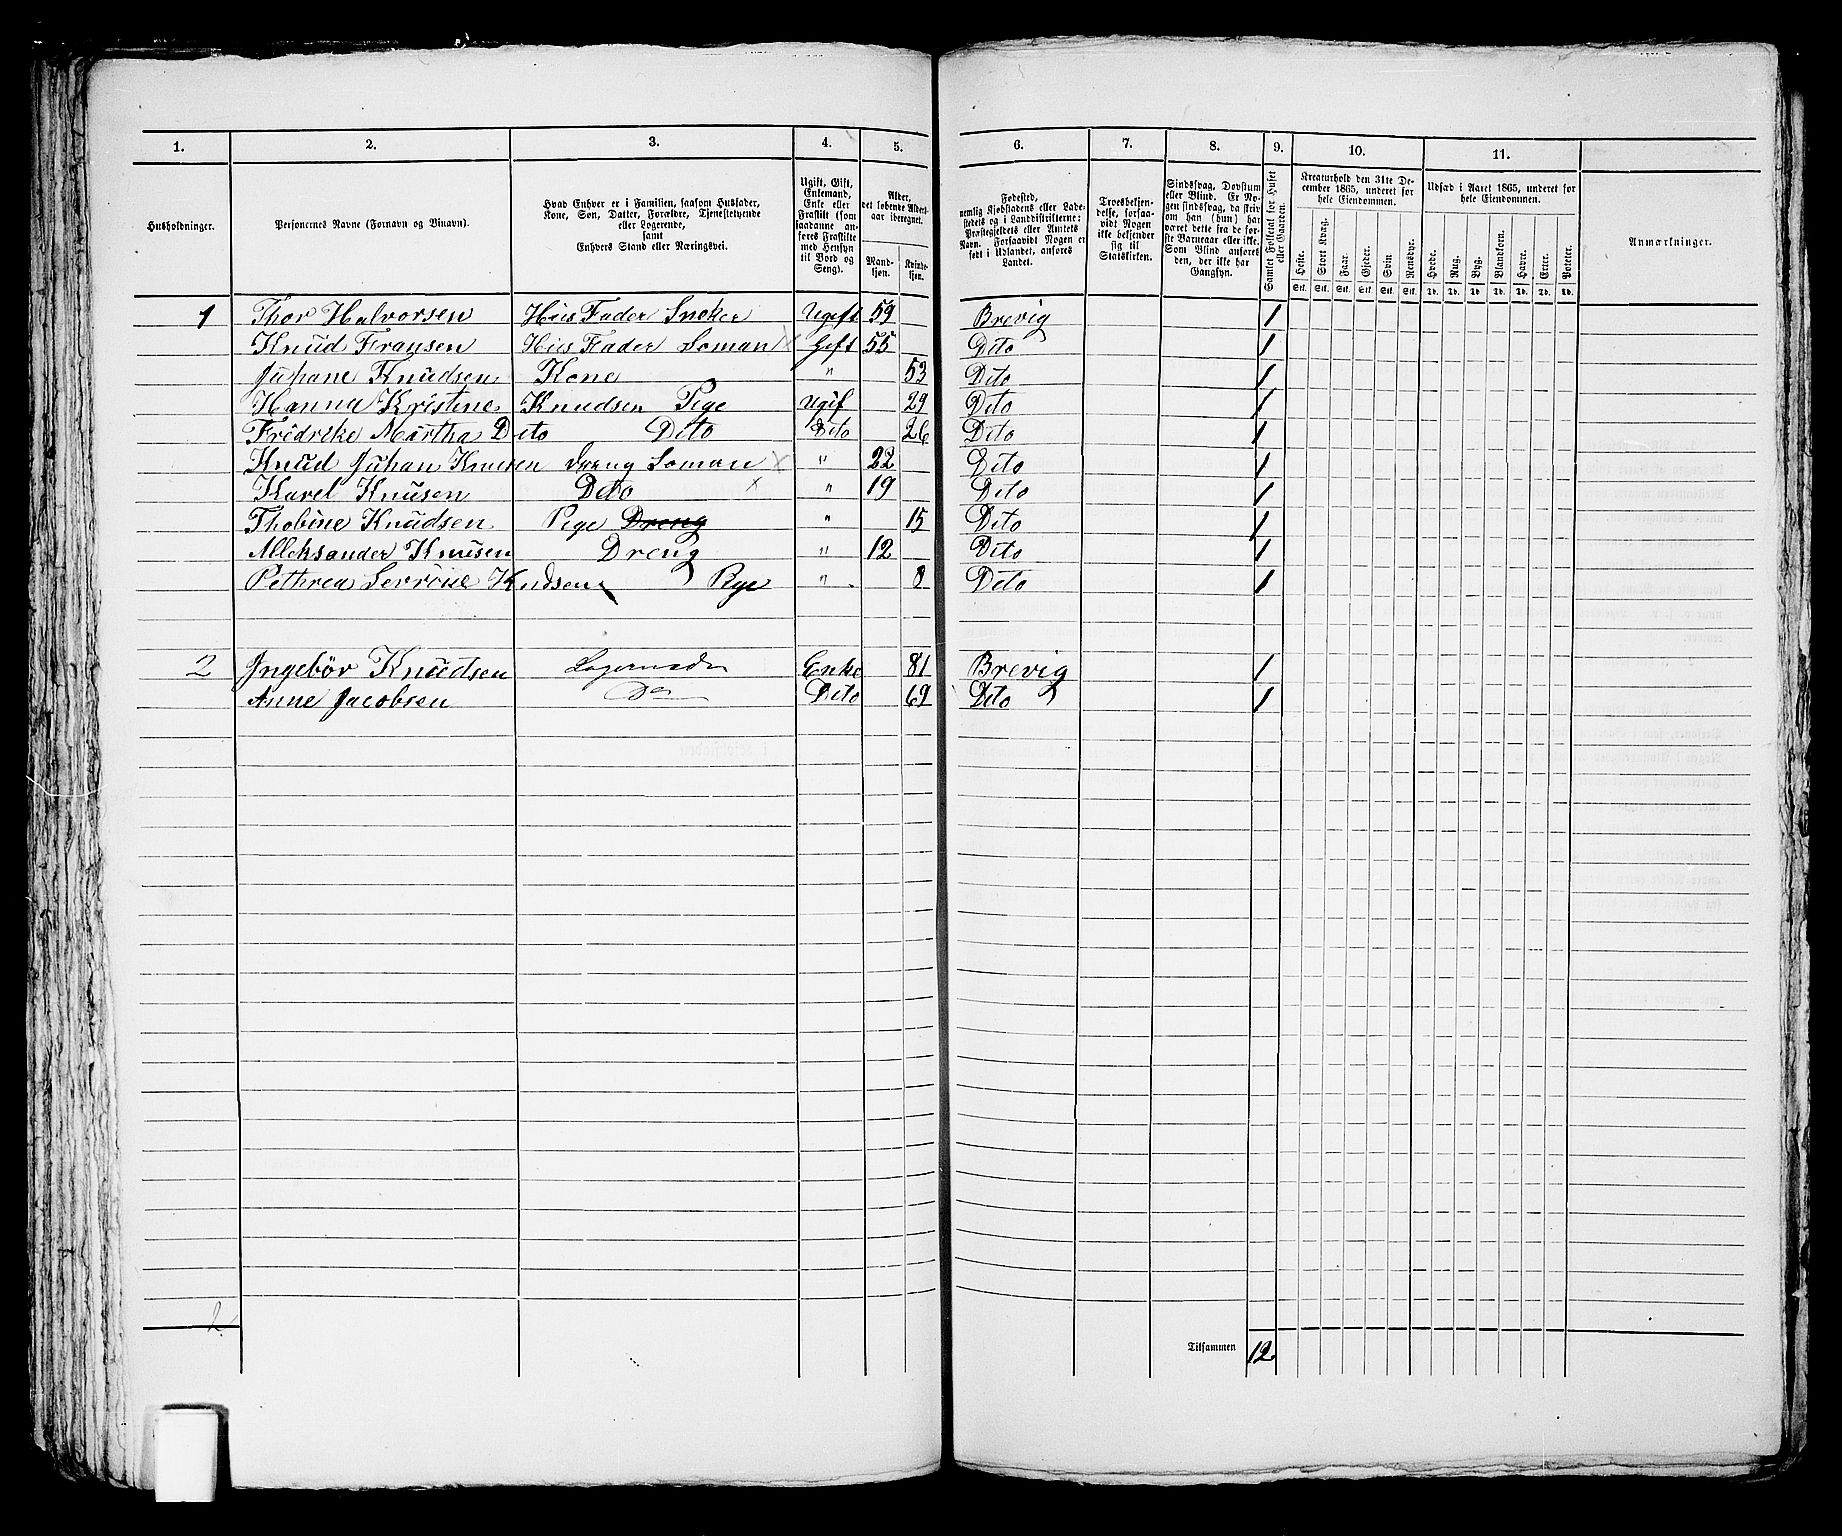 1. 2. 3. 4. 5. 6. 7. 8. 9. 10. 11.
Husholdninger.
Personernes Navne (Fornavn og Binavn).
Hvad Enhver er i Familien, saasom Husfader,
Kone, Søn, Datter, Forældre, Tjenestetyende
eller Logerende,
samt
Enhvers Stand eller Næringsvei.
Ugift, Gift,
Enkemand,
Enke eller
Fraskilt (som
saadanne an-
føres Fraskilte
med Hensyn
til Bord og
Seng).
Alder,
det løbende Alders-
aar iberegnet.
Mand-
kjøn.
Kvinde-
kjøn.
Fødested,
nemlig Kjøbstadens eller Lade-
stedets og i Landdistrikterne:
Præstegjeldets eller Amtets
Navn. Forsaavidt Nogen er
født i Udlandet, anføres
Landet.
Troesbekjen-
delse, forsaa-
vidt Nogen
ikke bekjender
sig til
Statskirken.
Sindssvag, Døvstum
eller Blind. Er No-
gen sindssvag, da skriv
om han (hun) har
været dette fra de før-
ste Barneaar eller ikke.
Som Blind anføres
den, der ikke har
Gangsyn.
Samlet Folketal for Huset
eller Gaarden.
Kreaturhold den 31te De-
cember 1865, underet for
hele Eiendommen.
Heste. Stort Kvæg. Faar. Gjeder. Svin Rensdyr.
Stk. Stk. Stk. Stk. Stk. Stk.
Udsæd i Aaret 1865, underet for
hele Eiendommen.
Hvede. Rug. Byg. Blandkorn. Havre. Erter. Poteter.
Td. Td. Td. Td. Td. Td. Td.
Anmærkninger.
1 Thor Halvorsen Hus Fader Sneker Ugift 59 Brevig 1
Knud Fransen Hus Fader Soman X Gift 55 Dito 1
Juhane Knudsen Kone " 53 Dito 1
Hanna Kristine Knudsen Pige Ugif 29 Dito 1
Fredrike Martha Dito Dito Dito 26 Dito 1
Knud Juhan Knusen Dreng Soman X " 22 Dito 1
Karel Knusen Dito X " 19 Dito 1
Thobine Knudsen Pige Dreng " 15 Dito 1
Alleksander Knusen Dreng " 12 Dito 1
Pethrea Serrine Kndsen Pige " 8 Dito 1
2 Ingebør Knudsen Logerende Enke 81 Brevig 1
Anne Jacobsen Do Dito 69 Dito 1
2
Tilsammen 12